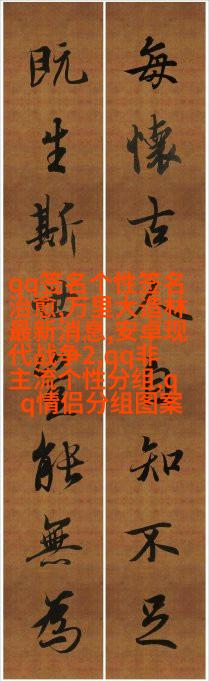 每懷古知不足
既生斯世能無為
qq签名个性签名
治愈,万里大造林
最新消息,安卓现
代战争2,qq非
主流个性分组,q
q情侣分组图案